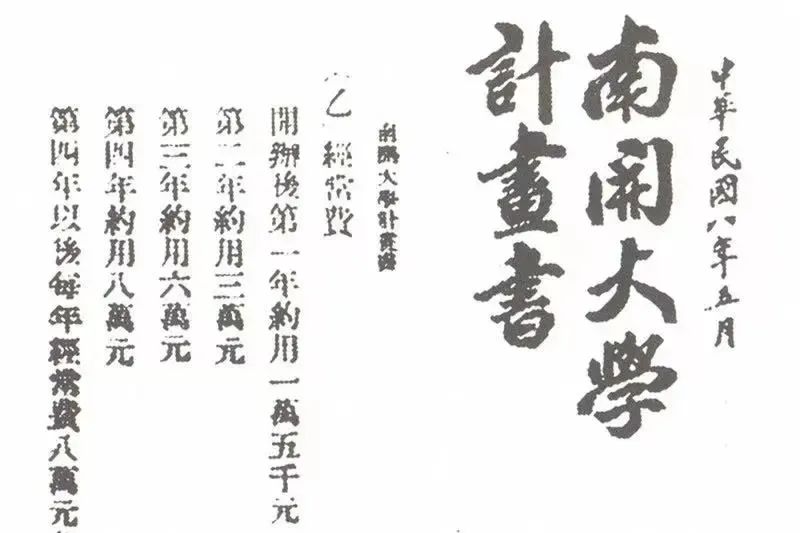 中華民國八年五月
南開大學
計畫書
南開大學計畫書
乙 經常費
開辦後第一年約用一萬五千元
第二年約用三萬元
第三年約用六萬元
第四年約用八萬元
第四年以後每年經常費八萬元